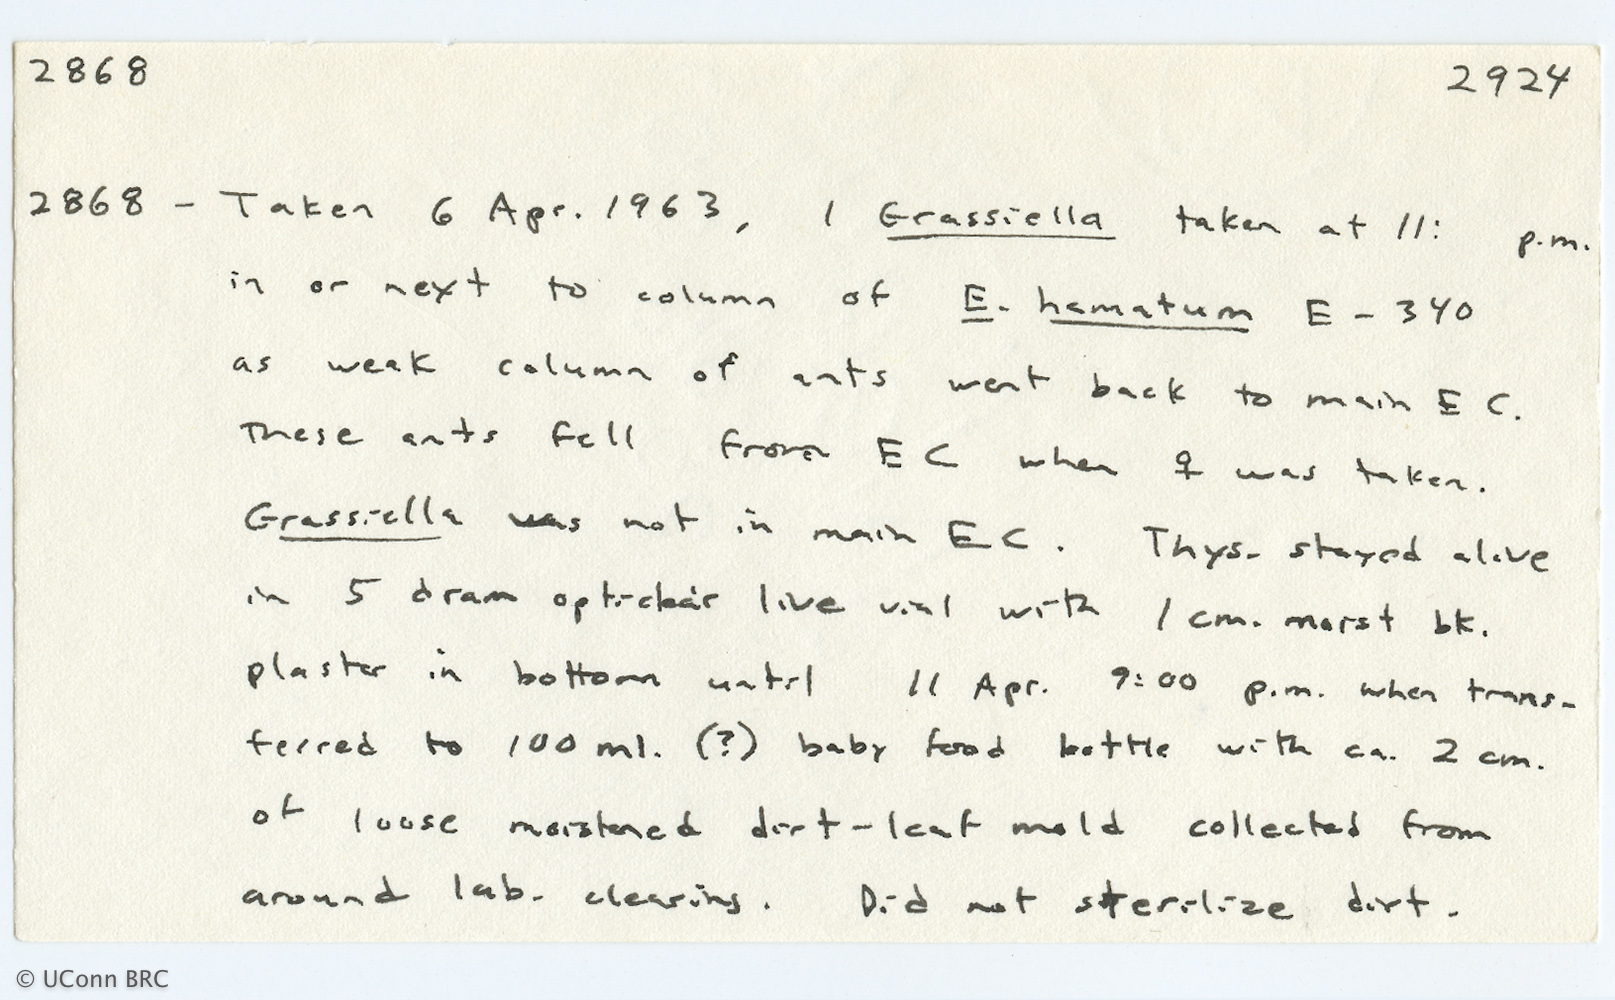 2868 2924
2868 - Taken 6 Apr. 1963, 1 Grassiella taken at 11: p.m.
in or next to column of E. hamatum E - 340
as weak column of ants went back to main E C.
These ants fell from E C when ♀ was taken.
Grassiella was not in main E C. Thys. stayed alive
in 5 dram opticlear live vial with 1 cm. moist bk.
plaster in bottom until 11 Apr. 9:00 p.m. when trans-
ferred to 100 ml. (?) baby food bottle with ca. 2 cm.
of loose moistened dirt-leaf mold collected from
around lab. clearing. Did not sterilize dirt.
© UConn BRC